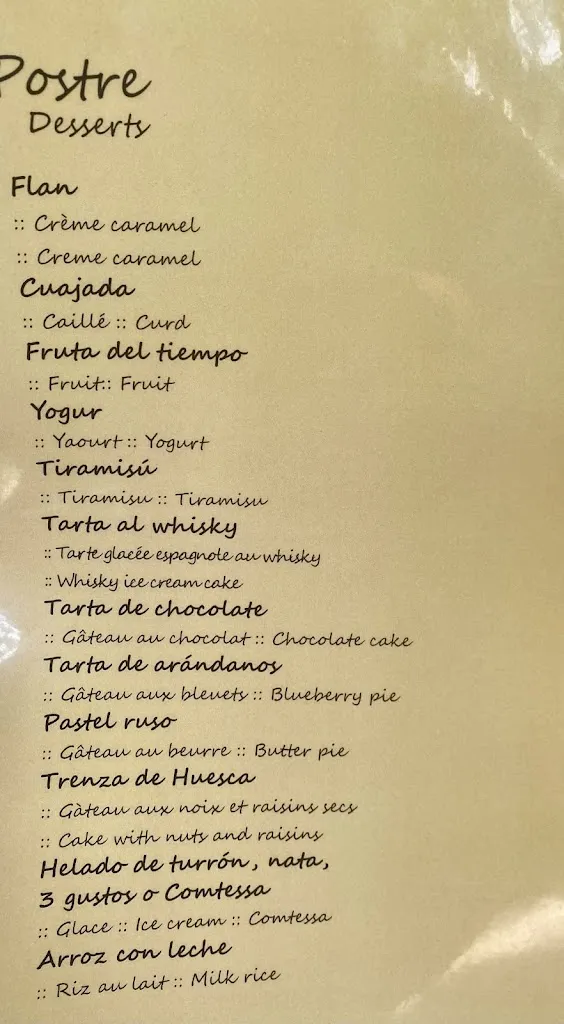 Postre
Desserts
Flan
:: Crème caramel
:: Creme caramel
Cuajada
:: Caillé :: Curd
Fruta del tiempo
:: Fruit:: Fruit
Yogur
:: Yaourt :: Yogurt
Tiramisú
:: Tiramisu :: Tiramisu
Tarta al whisky
:: Tarte glacée espagnole au whisky
:: Whisky ice cream cake
Tarta de chocolate
:: Gâteau au chocolat :: Chocolate cake
Tarta de arándanos
:: Gâteau aux bleuets :: Blueberry pie
Pastel ruso
:: Gâteau au beurre :: Butter pie
Trenza de Huesca
:: Gàteau aux noix et raisins secs
:: Cake with nuts and raisins
Helado de turrón, nata,
3 gustos o Comtessa
:: Glace :: Ice cream :: Comtessa
Arroz con leche
:: Riz au lait :: Milk rice